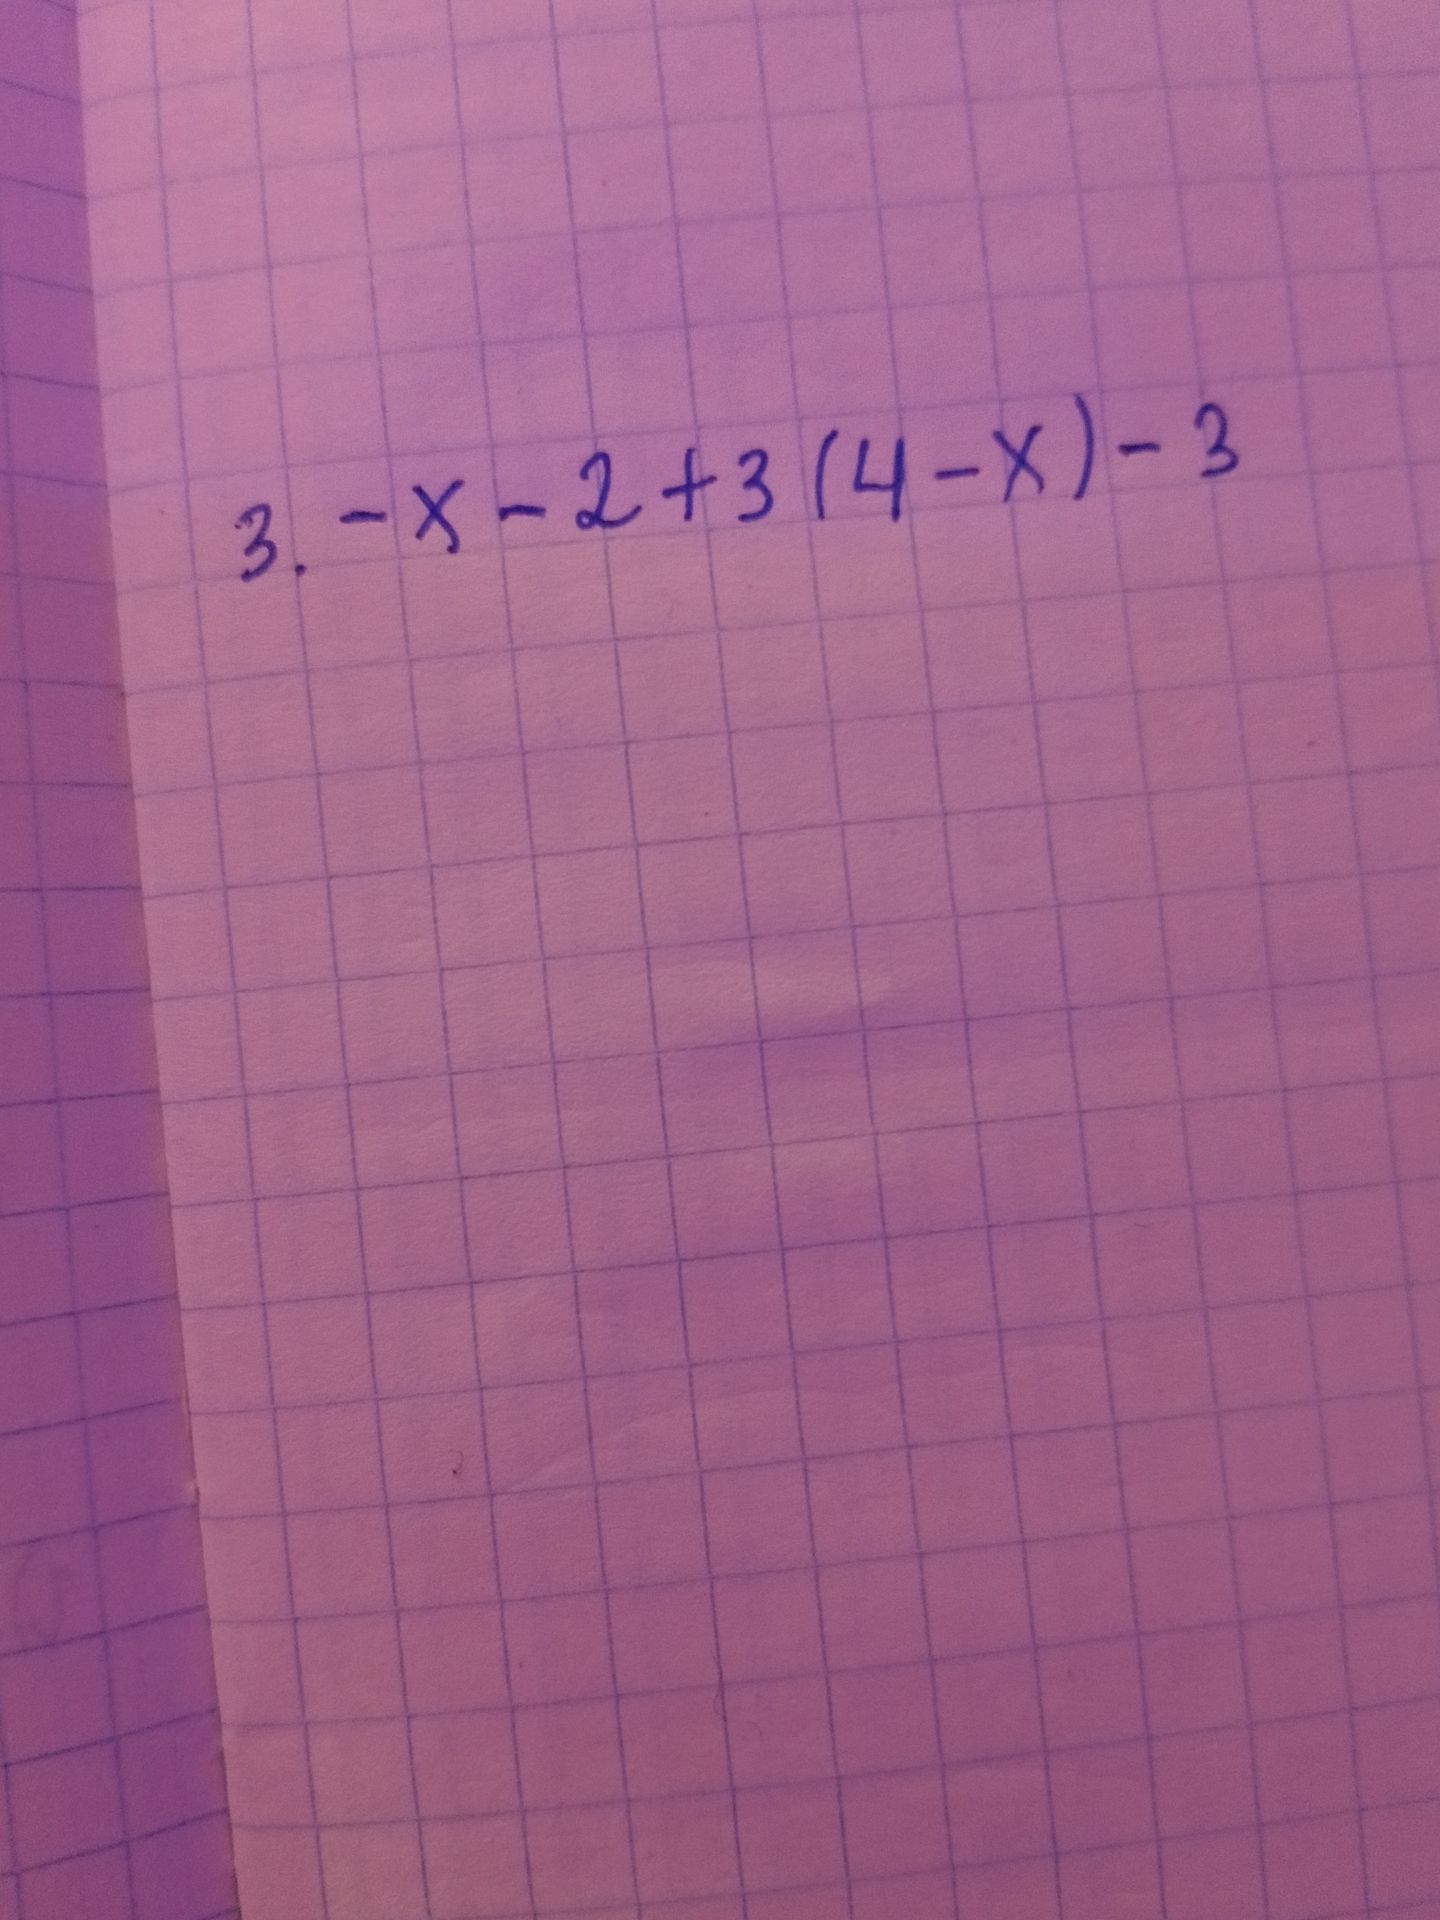 3. -x - 2 + 3 (4 - x) - 3